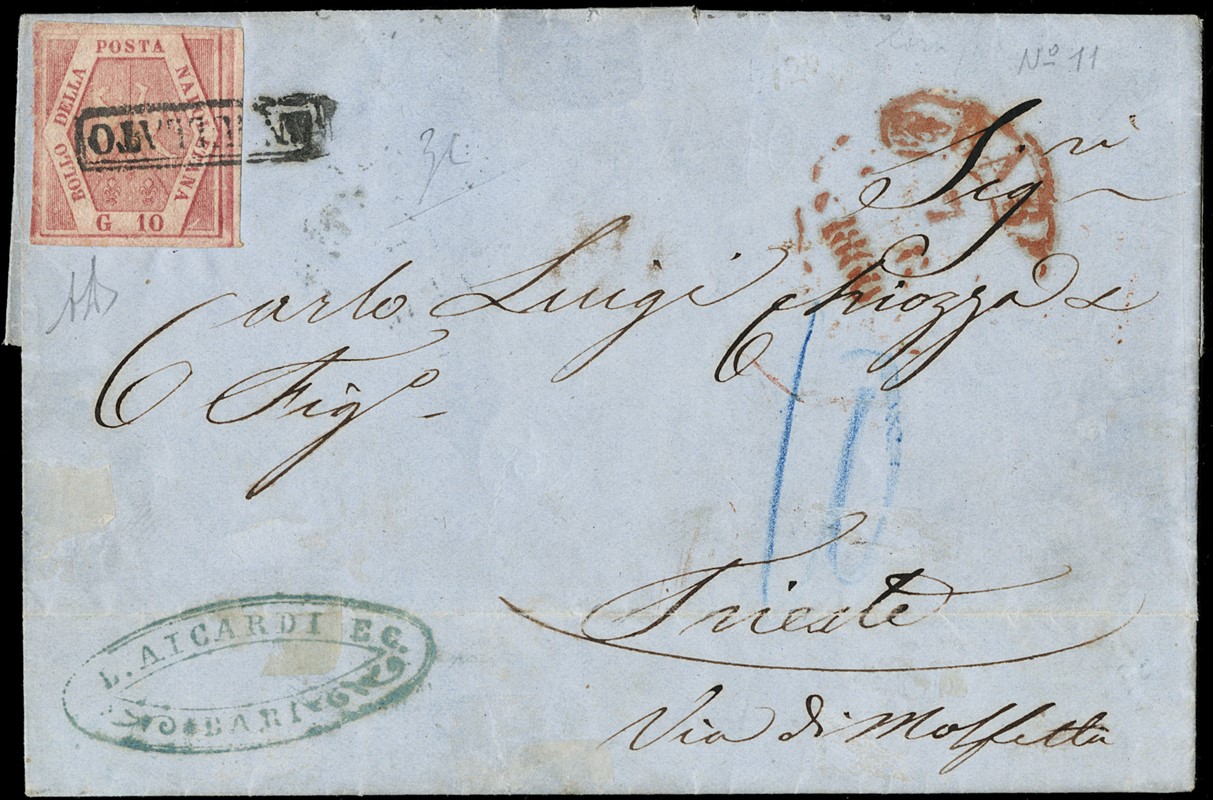 BOLLO DELLA POSTA NAPOLETANA
G 10
ANNULLATO
Nº 11
Sigri
Carlo Luigi Chiozza &
Figº
10
Trieste
Via di Molfetta
L. AICARDI E C.
BARI